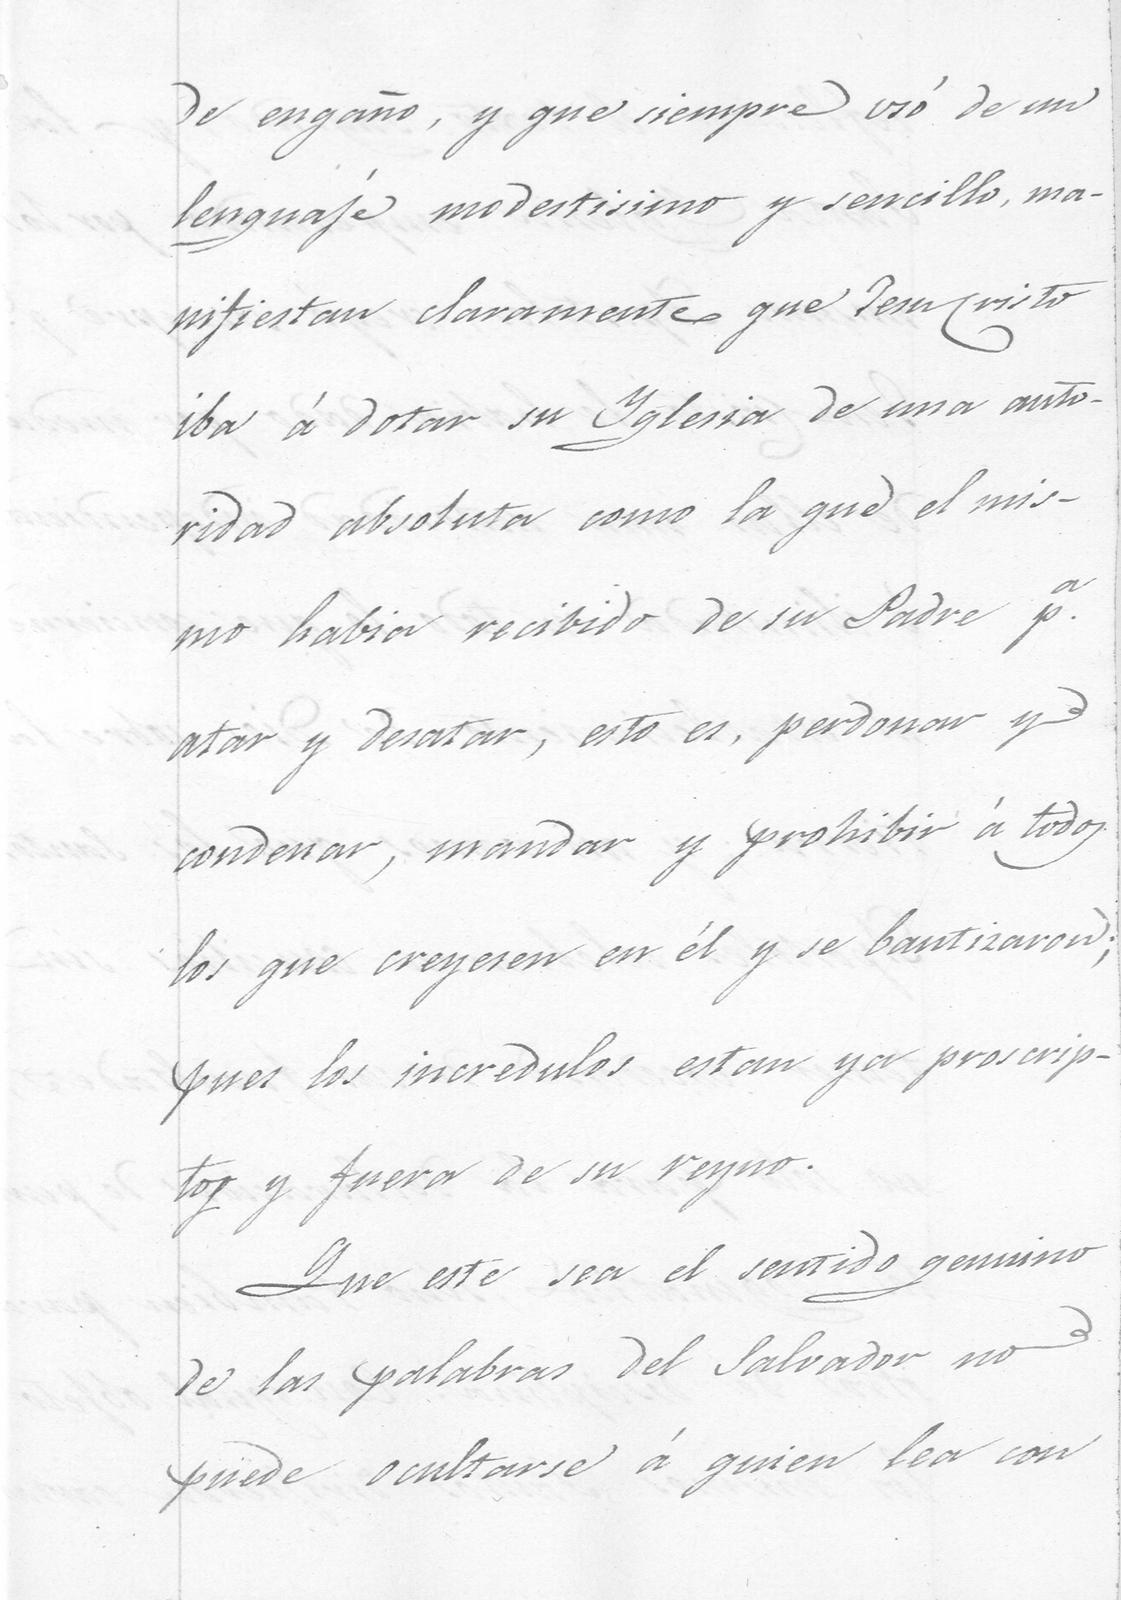 de engaño, y que siempre usó de un
lenguaje modestisimo y sencillo, ma-
nifiestan claramente que Jesu Cristo
iba á dotar su Yglesia de una auto-
ridad absoluta como la que el mis-
mo habia recibido de su Padre p.ª
atar y desatar, esto es, perdonar y
condenar, mandar y prohibir á todos
los que creyesen en él y se bautizaron;
pues los incredulos estan ya proscrip-
tos y fuera de su reyno.
Que este sea el sentido genuino
de las palabras del Salvador no
puede ocultarse á quien lea con